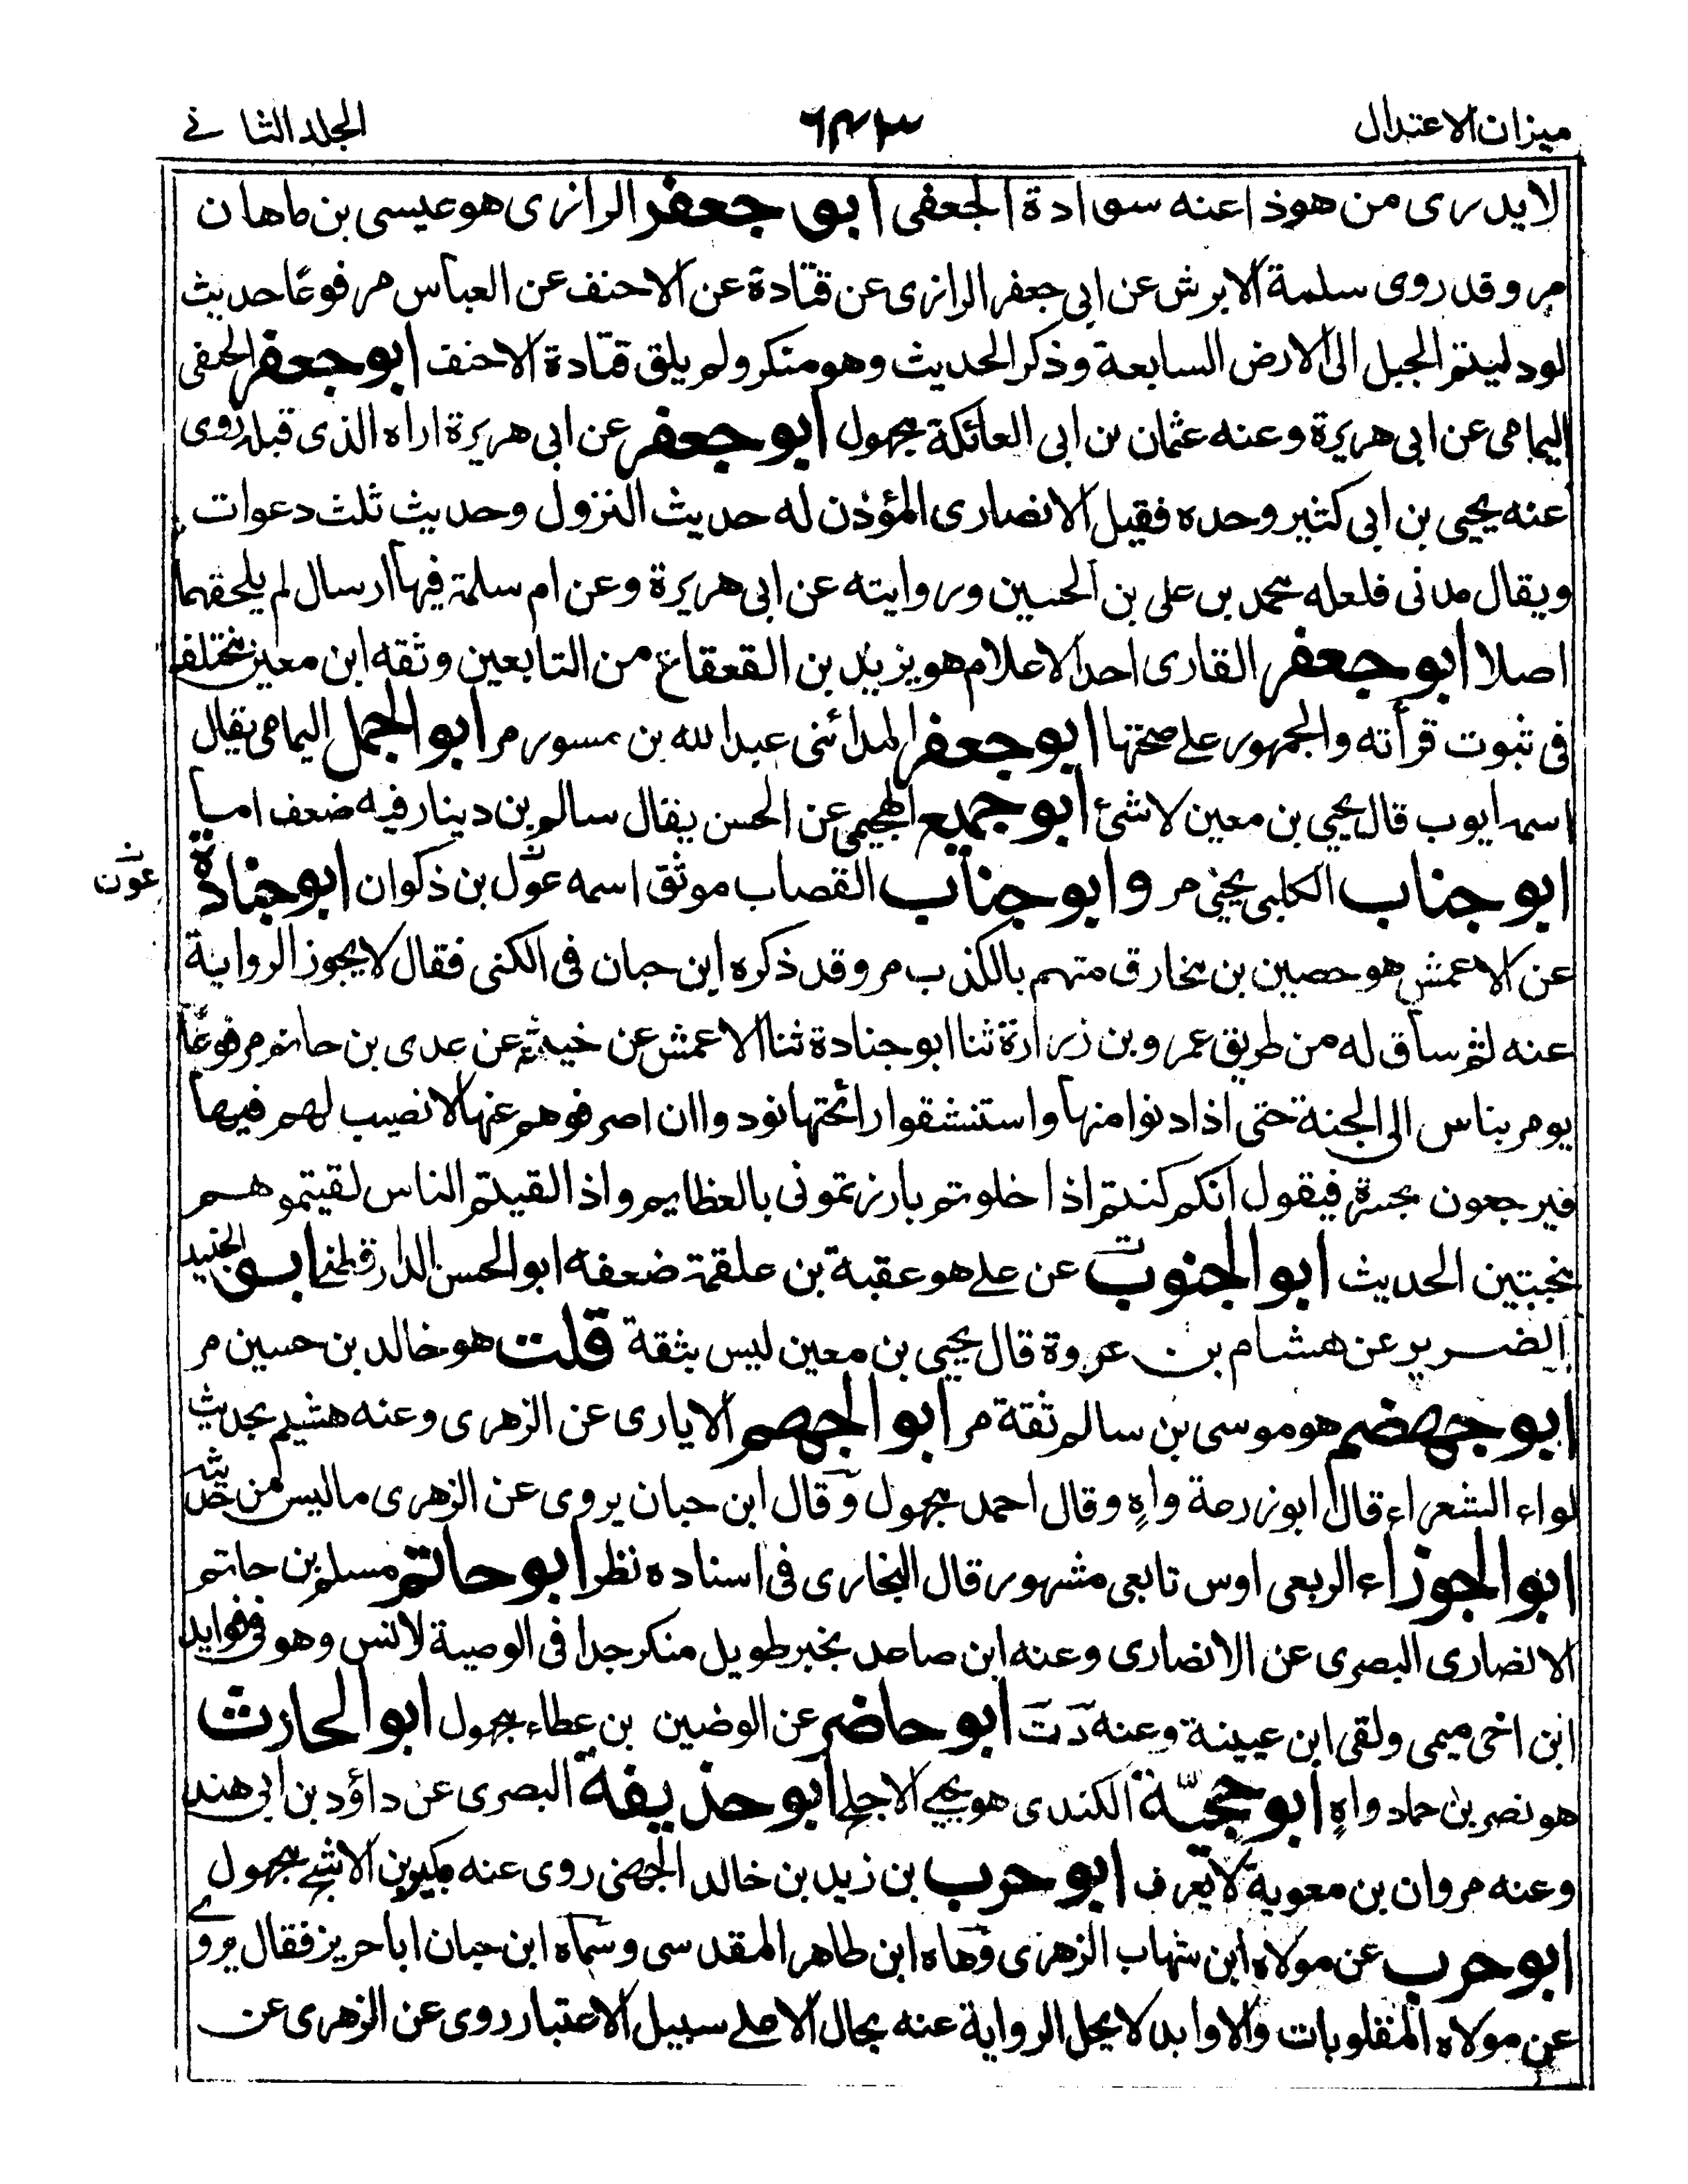 ميزان الاعتدال
٦٤٣
الجلد الثاني
لا يدرى من هو ذا عنه سوادة الجعفى ابو جعفر الرازى هو عيسى بن ماهان
مر وقد روى سلمة الابرش عن ابى جعفر الرازى عن قتادة عن الاحنف عن العباس مرفوعا حديث
لو دليتم الحبل الى الارض السابعة وذكر الحديث وهو منكر ولم يلق قتادة الاحنف ابو جعفر الحنفى
اليمامى عن ابى هريرة وعنه عثمان بن ابى العاتكة مجهول ابو جعفر عن ابى هريرة اراه الذى قبله روى
عنه يحيى بن ابى كثير وحده فقيل الانصارى المؤذن له حديث النزول وحديث ثلث دعوات
ويقال مدنى فلعله محمد بن على بن الحسين وروايته عن ابى هريرة وعن ام سلمة فيها ارسال لم يلحقهما
اصلا ابو جعفر القارى احد الاعلام هو يزيد بن القعقاع من التابعين وثقه ابن معين مختلف
فى ثبوت قرأته والجمهور على صحتها ابو جعفر المدائنى عبد الله بن مسور مر ابو الجمل اليمامى يقال
اسمه ايوب قال يحيى بن معين لا شئ ابو جميع الهجيمى عن الحسن يقال سالم بن دينار فيه ضعف اما
ابو جناب الكلبى يحيى مر وابو جناب القصاب موثق اسمه عون بن ذكوان ابو جنادة
عون
عن الاعمش هو حصين بن مخارق متهم بالكذب مر وقد ذكره ابن حبان فى الكنى فقال لا يجوز الرواية
عنه ثم ساق له من طريق عمرو بن زرارة ثنا ابو جنادة ثنا الاعمش عن خيثمة عن عدى بن حاتم مرفوعا
يومر بناس الى الجنة حتى اذا دنوا منها واستنشقوا رائحتها نودوا ان اصرفوهم عنها لا نصيب لهم فيها
فيرجعون بحسرة فيقول انكم كنتم اذا خلوتم بارزتمونى بالعظايم واذا لقيتم الناس لقيتموهم
مخبتين الحديث ابو الجنوب ت عن على هو عقبة بن علقمة ضعفه ابو الحسن الدارقطنى ابو الجنيد
الضرير عن هشام بن عروة قال يحيى بن معين ليس بثقة قلت هو خالد بن حسين مر
ابو جهضم هو موسى بن سالم ثقة مر ابو الجهم الايارى عن الزهرى وعنه هشيم بحديث
لواء الشعراء قال ابو زرعة واه وقال احمد مجهول وقال ابن حبان يروى عن الزهرى ما ليس من حديثه
ابو الجوزاء الربعى اوس تابعى مشهور قال البخارى فى اسناده نظر ابو حاتم مسلم بن حاتم
الانصارى البصرى عن الانصارى وعنه ابن صاعد بخبر طويل منكر جدا فى الوصية لانس وهو فى فوايد
ابن اخى ميمى ولقى ابن عيينة وعنه د ت ابو حاضر عن الوضين بن عطاء مجهول ابو الحارث
هو نصر بن حماد واه ابو حجية الكندى هو يحيى الاجلح ابو حذيفة البصرى عن داؤد بن ابى هند
وعنه مروان بن معوية لا يعرف ابو حرب بن زيد بن خالد الجهنى روى عنه بكير بن الاشج مجهول
ابو حرب عن مولاه ابن شهاب الزهرى وهاه ابن طاهر المقدسى وسماه ابن حبان ابا حريز فقال يروى
عن مولاه المقلوبات والاوابد لا يحل الرواية عنه بحال الا على سبيل الاعتبار روى عن الزهرى عن